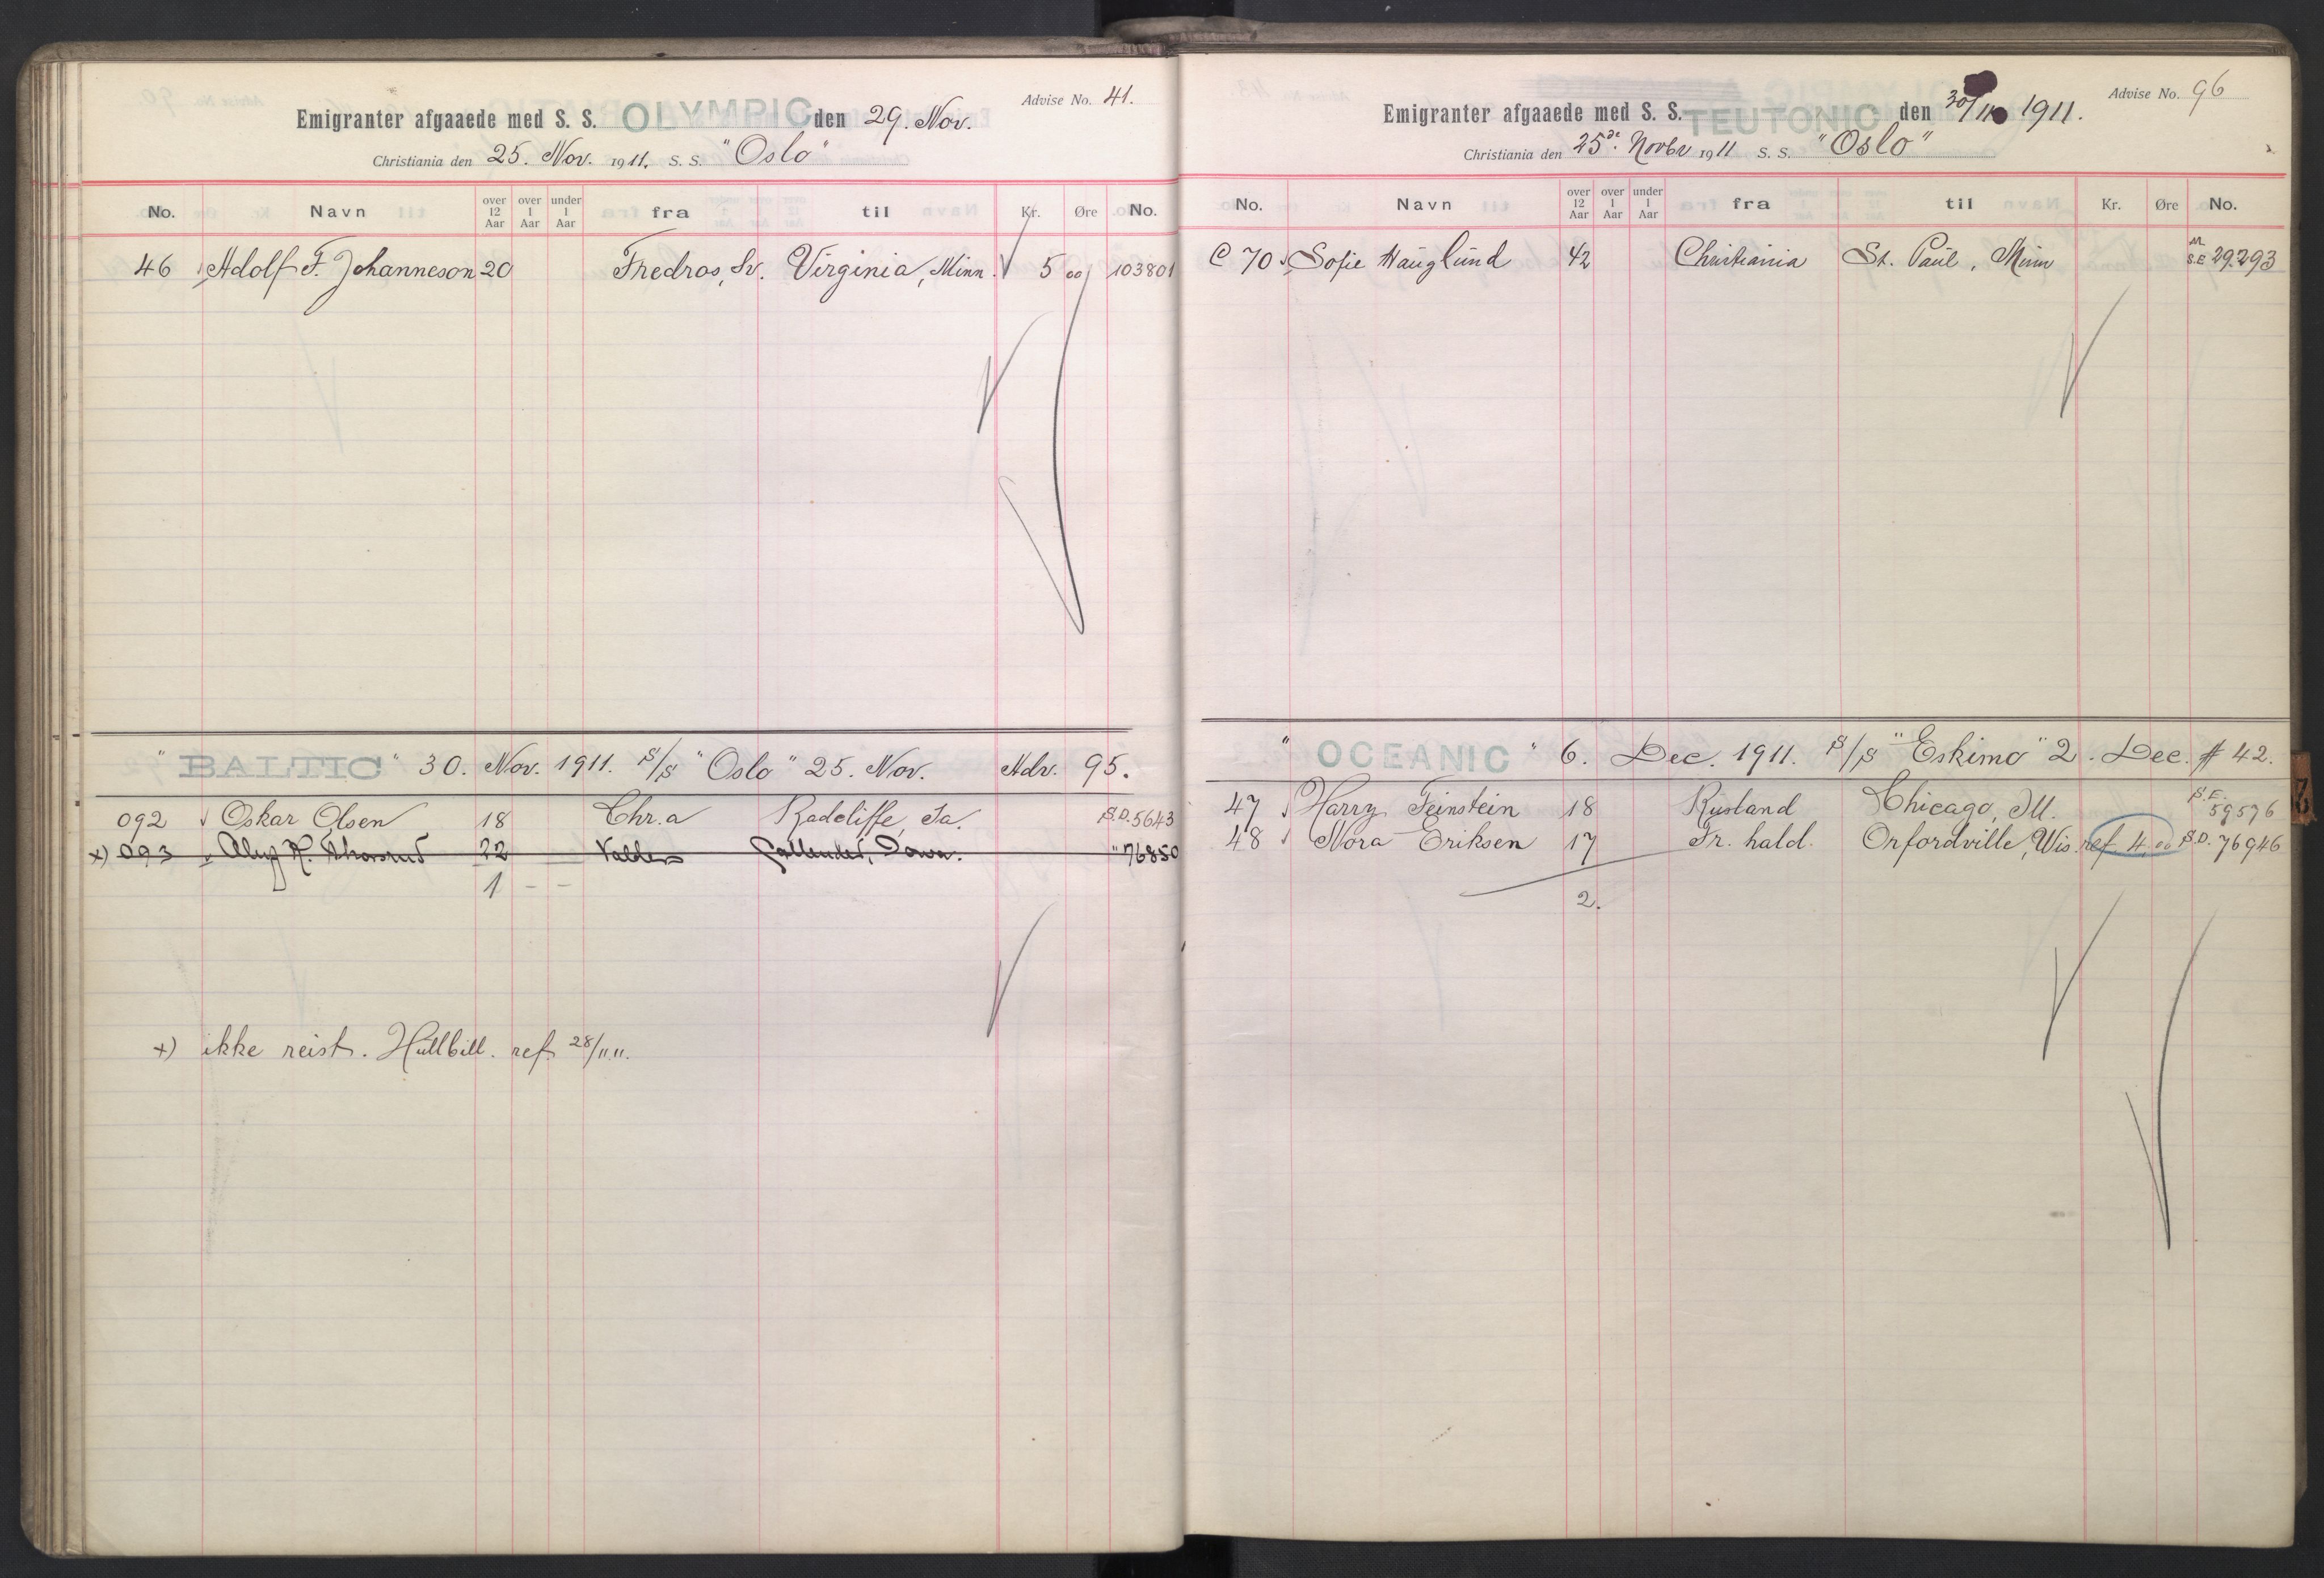 Advise No. 41.
Emigranter afgaaede med S. S. OLYMPIC den 29. Nov.
Christiania den 25. Nov. 1911. S. S. "Oslo"
No. Navn over 12 Aar over 1 Aar under 1 Aar fra til Kr. Øre No.
46 Adolf F. Johanneson 20 Fredros, Sv. Virginia, Minn. 5 00 103801
" BALTIC " 30. Nov. 1911. S/S "Oslo" 25. Nov. Adv. 95.
092 Oskar Olsen 18 Chr.a Radcliffe, Ia. S.D. 5643
x) 093 22 Valders Callender, Iowa. " 76850
1 - -
x) ikke reist. Hullbill. ref. 28/11.11.
Advise No. 96
Emigranter afgaaede med S. S. TEUTONIC den 30/11 1911.
Christiania den 25de Novbr 1911 S. S. "Oslo"
No. Navn over 12 Aar over 1 Aar under 1 Aar fra til Kr. Øre No.
C 70 Sofie Hauglund 42 Christiania St. Paul, Minn S.E 29293
" OCEANIC " 6. Dec. 1911. S/S "Eskimo" 2. Dec. # 42.
47 Harry Feinstein 18 Rusland Chicago, Ill. S.E. 59576
48 Nora Eriksen 17 Fr. hald. Orfordville, Wis. ref. 4.00 S.D. 76946
2.